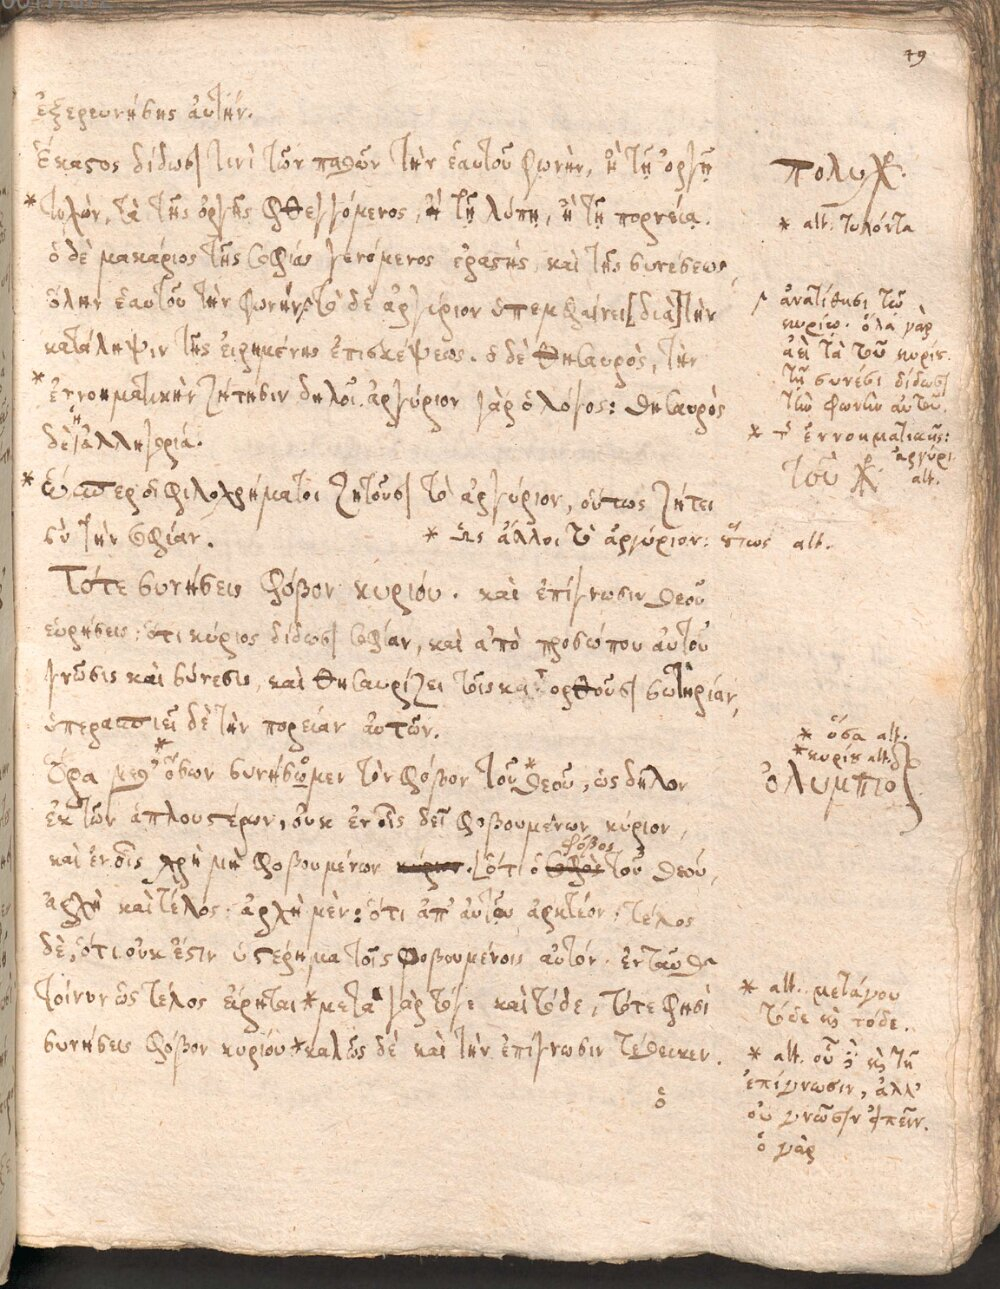 49
ἐξερευνήσῃς αὐτήν.
Ἕκαστος δίδωσι τινὶ τῶν παθῶν τὴν ἑαυτοῦ φωνὴν, ἢ τῇ ὀργῇ
* τυχὸν, τὰ τῆς ὀργῆς φθεγγόμενος, ἢ τῇ λύπῃ, ἢ τῇ πορνείᾳ.
ὁ δὲ μακάριος τῆς σοφίας γενόμενος ἐραστής, καὶ τῆς συνέσεως,
ὅλην ἑαυτοῦ τὴν φωνήν τὸ δὲ ἀργύριον ὑπεμφαίνει [διὰ] τὴν
κατάληψιν τῆς εἰρημένης ἐπισκέψεως. ὁ δὲ θησαυρὸς, τὴν
* ἐννοηματικὴν ζήτησιν δηλοῖ. ἀργύριον γὰρ ὁ λόγος: θησαυρὸς
δὲ ἡ ἀλληγορία.
* ὥσπερ οἱ φιλοχρήματοι ζητοῦσι τὸ ἀργύριον, οὕτως ζήτει
σὺ τὴν σοφίαν. * ὡς ἄλλοι τὸ ἀργύριον: οὕτως alt.
Τότε συνήσεις φόβον κυρίου. καὶ ἐπίγνωσιν θεοῦ
εὑρήσεις: ὅτι κύριος δίδωσι σοφίαν, καὶ ἀπὸ προσώπου αὐτοῦ
γνῶσις καὶ σύνεσις, καὶ θησαυρίζει τοῖς κατορθοῦσι σωτηρίαν,
ὑπερασπιεῖ δὲ τὴν πορείαν αὐτῶν.
Ὅρα μεθ' * ὅσων συνήσωμεν τὸν φόβον τοῦ * θεοῦ, ὡς δῆλον
ἐκ τῶν ἁπλουστέρων, οὐκ ἐν οἷς δεῖ φοβουμένων κύριον,
καὶ ἐν οἷς χρὴ μὴ φοβουμένων κύριον. [ὅτι ὁ φόβος τοῦ θεοῦ,
ἀρχὴ καὶ τέλος: ἀρχὴ μὲν: ὅτι ἀπ' αὐτοῦ ἀρκτέον: τέλος
δὲ, ὅτι οὐκ ἔστιν ὑστέρημα τοῖς φοβουμένοις αὐτόν. ἐνταῦθα
τοίνυν ὡς τέλος εἴρηται * μετὰ γὰρ τόγε καὶ τόδε, τότε φησὶ
συνήσεις φόβον κυρίου * καλῶς δὲ καὶ τὴν ἐπίγνωσιν τέθεικεν.
ὁ
πολυχ.
* alt. τυλόντα
ἀνατίθησι τῷ
κυρίῳ. ὅλα γὰρ
ἀεὶ τὰ τοῦ κυρίου
τῇ συνέσι δίδωσι
τὴν φωνὴν αὐτοῦ.
* ἐννοηματικῆς:
ἀργύρι
alt.
τοῦ χρ
* ὅσα alt.
* κυρίου alt.
ὀλυμπιο
* alt. μετάγου
τόδε εἰς τόδε.
* alt. εἰς τὴν
ἐπίγνωσιν, ἀλλ'
οὐ γνῶσιν εἶπεν.
ὁ γὰρ